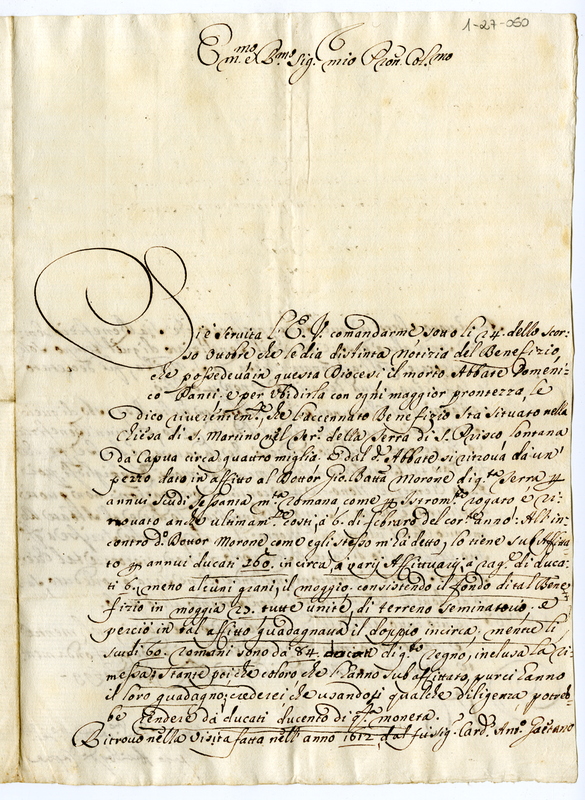 1-27-050
Em.mo e R.mo Sig. mio Pron. Col.mo
Si è servita l'E. V. comandarme sotto li 24. dello scor-
so Ottobre che le dia distinta notizia del Benefizio,
che possedeva in questa Diocesi il morto Abbate Domeni-
co Santi. e per ubidirla con ogni maggior prontezza, le
dico riverentem.te, che l'accennato Benefizio sta situato nella
Chiesa di S. Martino nel Ter.o della Terra di S. Prisco lontana
da Capua circa quattro miglia. E dal d.o Abbate si ritrova da un
pezzo dato in affitto al Dottor Gio. Batta Morone di q.ta Terra p
annui scudi sessanta m.ta romana come p Istrom.to rogato e ri-
novato anche ultimam.te costì, a 6. di febraro del cor.te anno. All'in-
contro d.o Dottor Morone come egli stesso m'hà detto, lo tiene subaffitta-
to p annui ducati 160. in circa, a varij Affittuarij, a rag.e di duca-
ti 6. meno alcuni grani, il moggio. consistendo il fondo di tal Bene-
fizio in moggia 27. tutte unite, di terreno seminatorio. e
perciò in tal affitto guadagnava il doppio incirca. mentre li
scudi 60. romani sono da 84. ducati di q.to regno, inclusa la ri-
messa; stante poi che coloro che l'anno subaffittato, pur ci anno
il loro guadagno; crederei che usandosi qualche diligenza, potreb-
be rendere da ducati ducento di q.ta moneta.
Ritrovo nella Visita fatta nell'anno 1612. dal fu sig. Card. Ant.o Gaetano